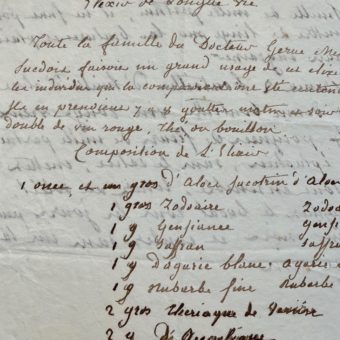 Elixir de Longue vie
Toute la famille du Docteur Gerne Me
Suedois faisoie un grand usage de cet elixi
les individus qui la composoient ont
Ils en prenoient 7 a 8 goutte matin et soir
double de vin rouge, thé ou bouillon
Composition de L'Elixir
1 once et un gros d'Aloes sucotrin d'Aloe
1 gros Zodoaire Zodoa
1 g Gensiance Gensi
1 g Saffran Saffra
1 g d'agaric blanc agaric
1 g Rubarbe fine Rubarbe
2 gros theriaque de Venise
2 g